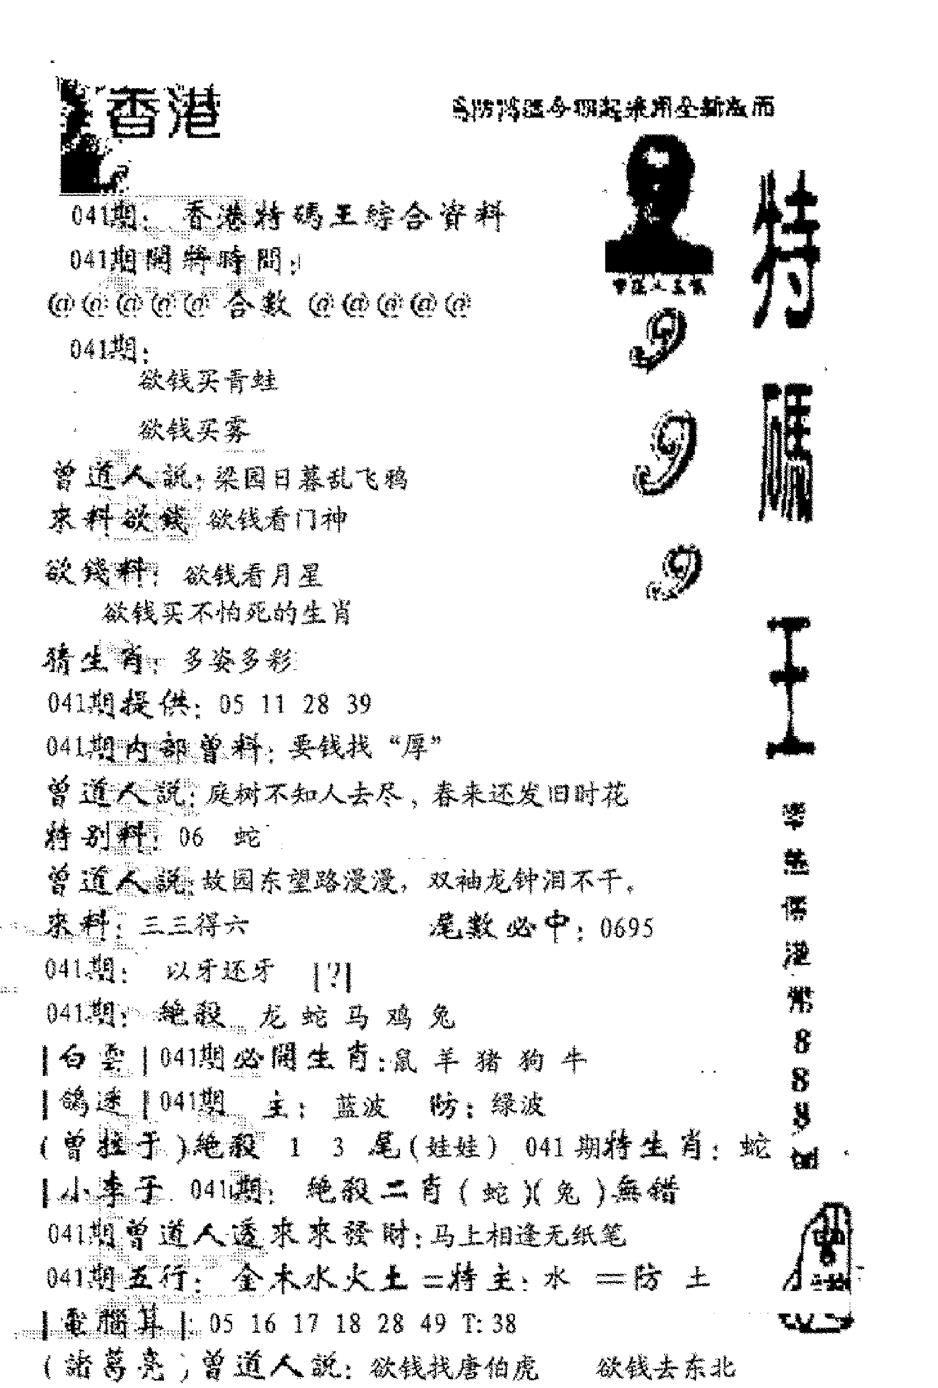 香港
特碼王
999
041期: 香港特碼王綜合資料
041期開將時間:
@@@@@ 合數 @@@@@
041期:
欲钱买青蛙
欲钱买雾
曾道人説: 梁园日暮乱飞鸦
來料欲錢 欲钱看门神
欲錢料: 欲钱看月星
欲钱买不怕死的生肖
猜生肖: 多姿多彩
041期提供: 05 11 28 39
041期内部曾料: 要钱找“厚”
曾道人説: 庭树不知人去尽, 春来还发旧时花
特别料: 06 蛇
曾道人説: 故园东望路漫漫, 双袖龙钟泪不干。
來料: 三三得六 尾數必中: 0695
041期: 以牙还牙 |?|
041期: 絶殺 龙 蛇 马 鸡 兔
|白雲|041期必開生肖:鼠 羊 猪 狗 牛
|鴿迷|041期 主: 蓝波 防: 绿波
(曾拉于)絶殺 1 3 尾(娃娃) 041期特生肖: 蛇
|小李子 041期: 絶殺二肖(蛇)(兔)無錯
041期曾道人透來來發財:马上相逢无纸笔
041期五行: 金木水火土=特主: 水 =防 土
|電腦算|: 05 16 17 18 28 49 T:38
(諸葛亮)曾道人説: 欲钱找唐伯虎 欲钱去东北